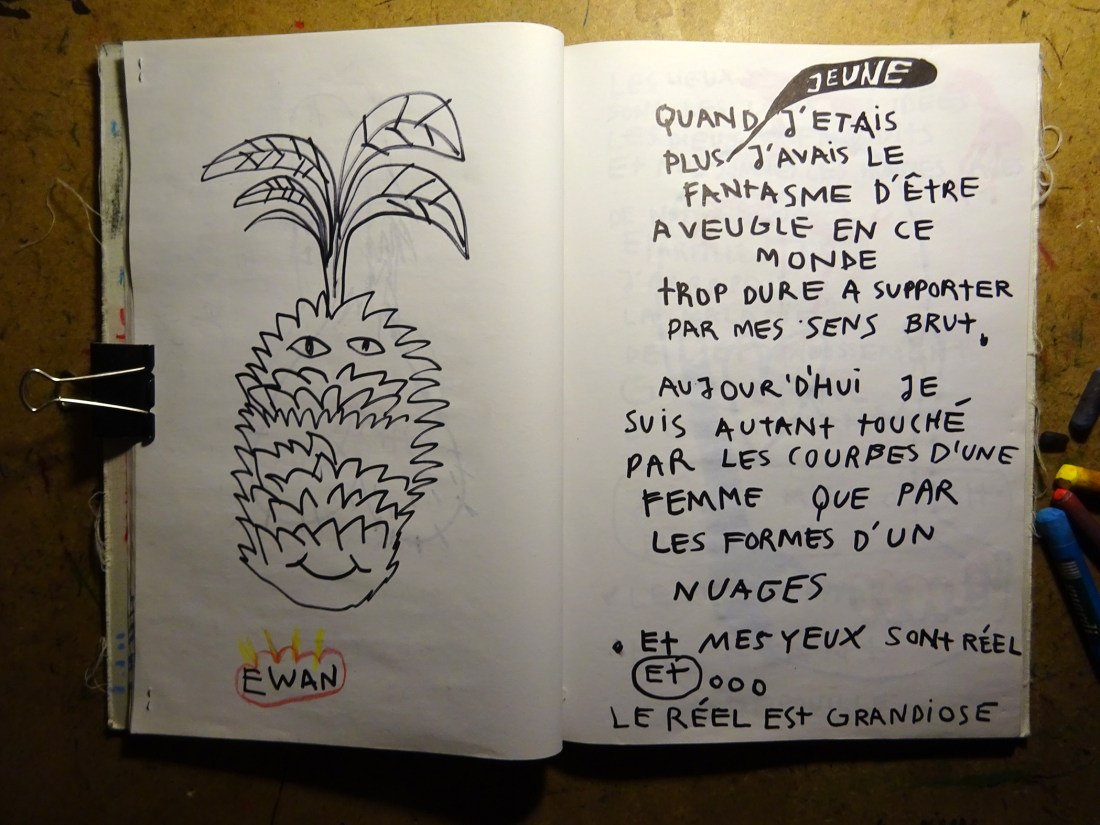 EWAN
JEUNE
QUAND J'ETAIS
PLUS J'AVAIS LE
FANTASME D'ÊTRE
AVEUGLE EN CE
MONDE
TROP DURE A SUPPORTER
PAR MES SENS BRUT.
AUJOUR'D'HUI JE
SUIS AUTANT TOUCHÉ
PAR LES COURBES D'UNE
FEMME QUE PAR
LES FORMES D'UN
NUAGES
• ET MES YEUX SONT RÉEL
ET...
LE RÉEL EST GRANDIOSE